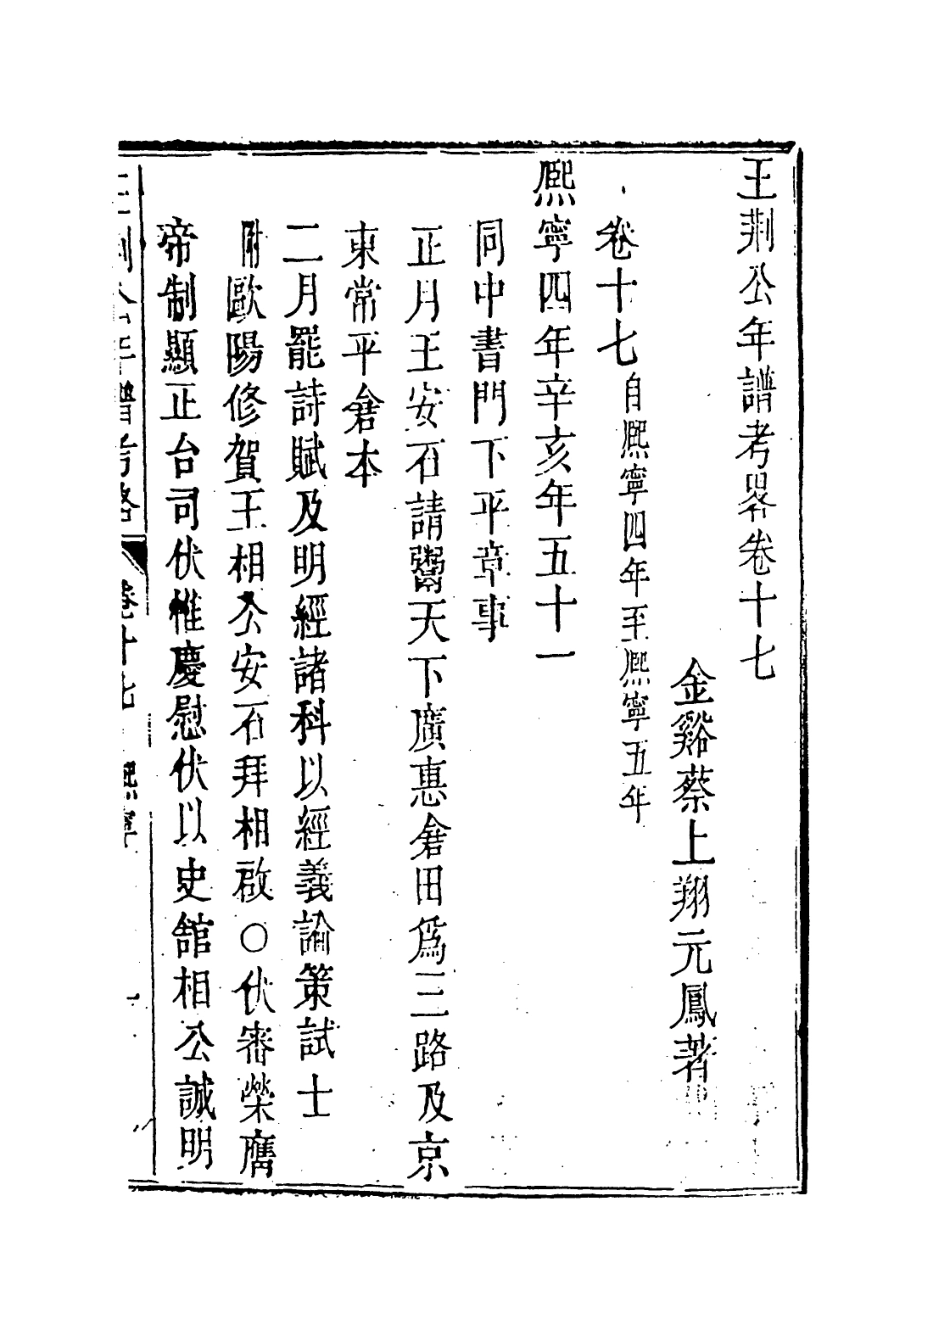 王荆公年譜考畧卷十七
金谿蔡上翔元鳳著
卷十七自熈寧四年至熈寧五年
熈寧四年辛亥年五十一
同中書門下平章事
正月王安石請鬻天下廣惠倉田爲三路及京
東常平倉本
二月罷詩賦及明經諸科以經義論策試士
附歐陽修賀王相公安石拜相啟○伏審榮膺
帝制顯正台司伏惟慶慰伏以史館相公誠明
王荆公年譜考畧 卷十七 熈寧